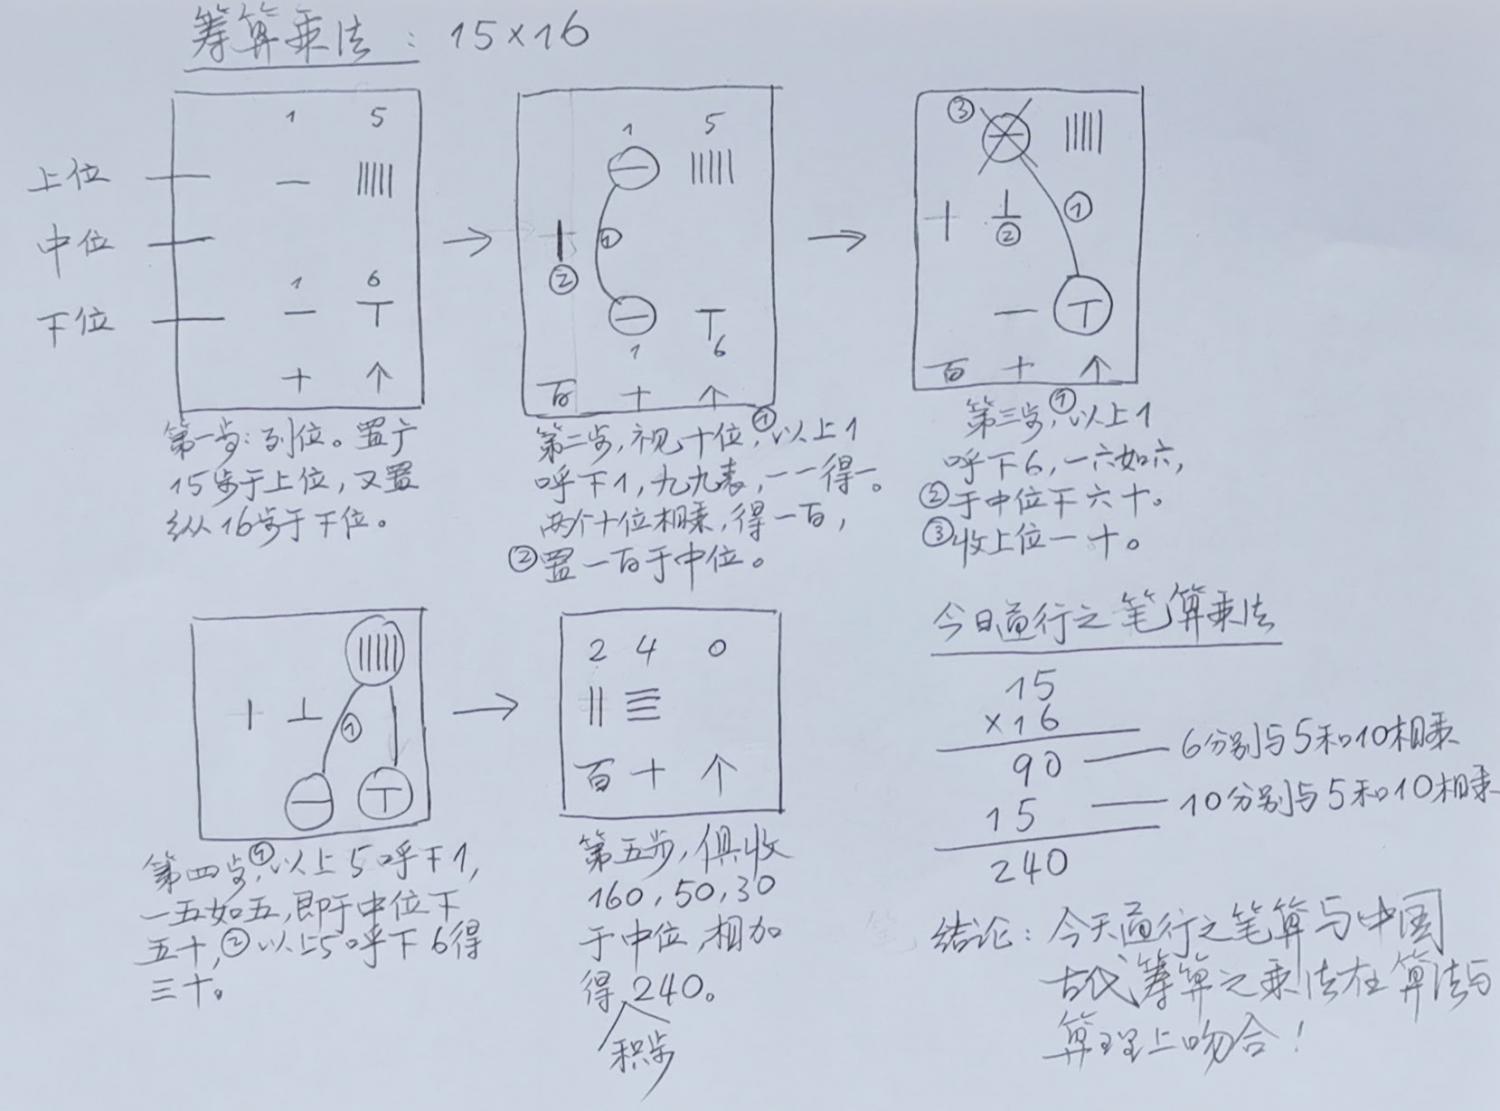 筹算乘法：15×16
1 5
上位
中位
1 6
下位
十 个
第一步：列位。置广
15步于上位，又置
纵16步于下位。
1 5
①
②
1 6
百 十 个
第二步，视十位，①以上1
呼下1，九九表，一一得一。
两个十位相乘，得一百，
②置一百于中位。
③
①
②
百 十 个
第三步，①以上1
呼下6，一六如六，
②于中位下六十。
③收上位一十。
①
第四步①，以上5呼下1，
一五如五，即于中位下
五十，②以上5呼下6得
三十。
2 4 0
百 十 个
第五步，俱收
160，50，30
于中位，相加
得240。
积步
今日通行之笔算乘法
15
×16
90 6分别与5和10相乘
15 10分别与5和10相乘
240
结论：今天通行之笔算与中国
古代筹算之乘法在算法与
算理上吻合！